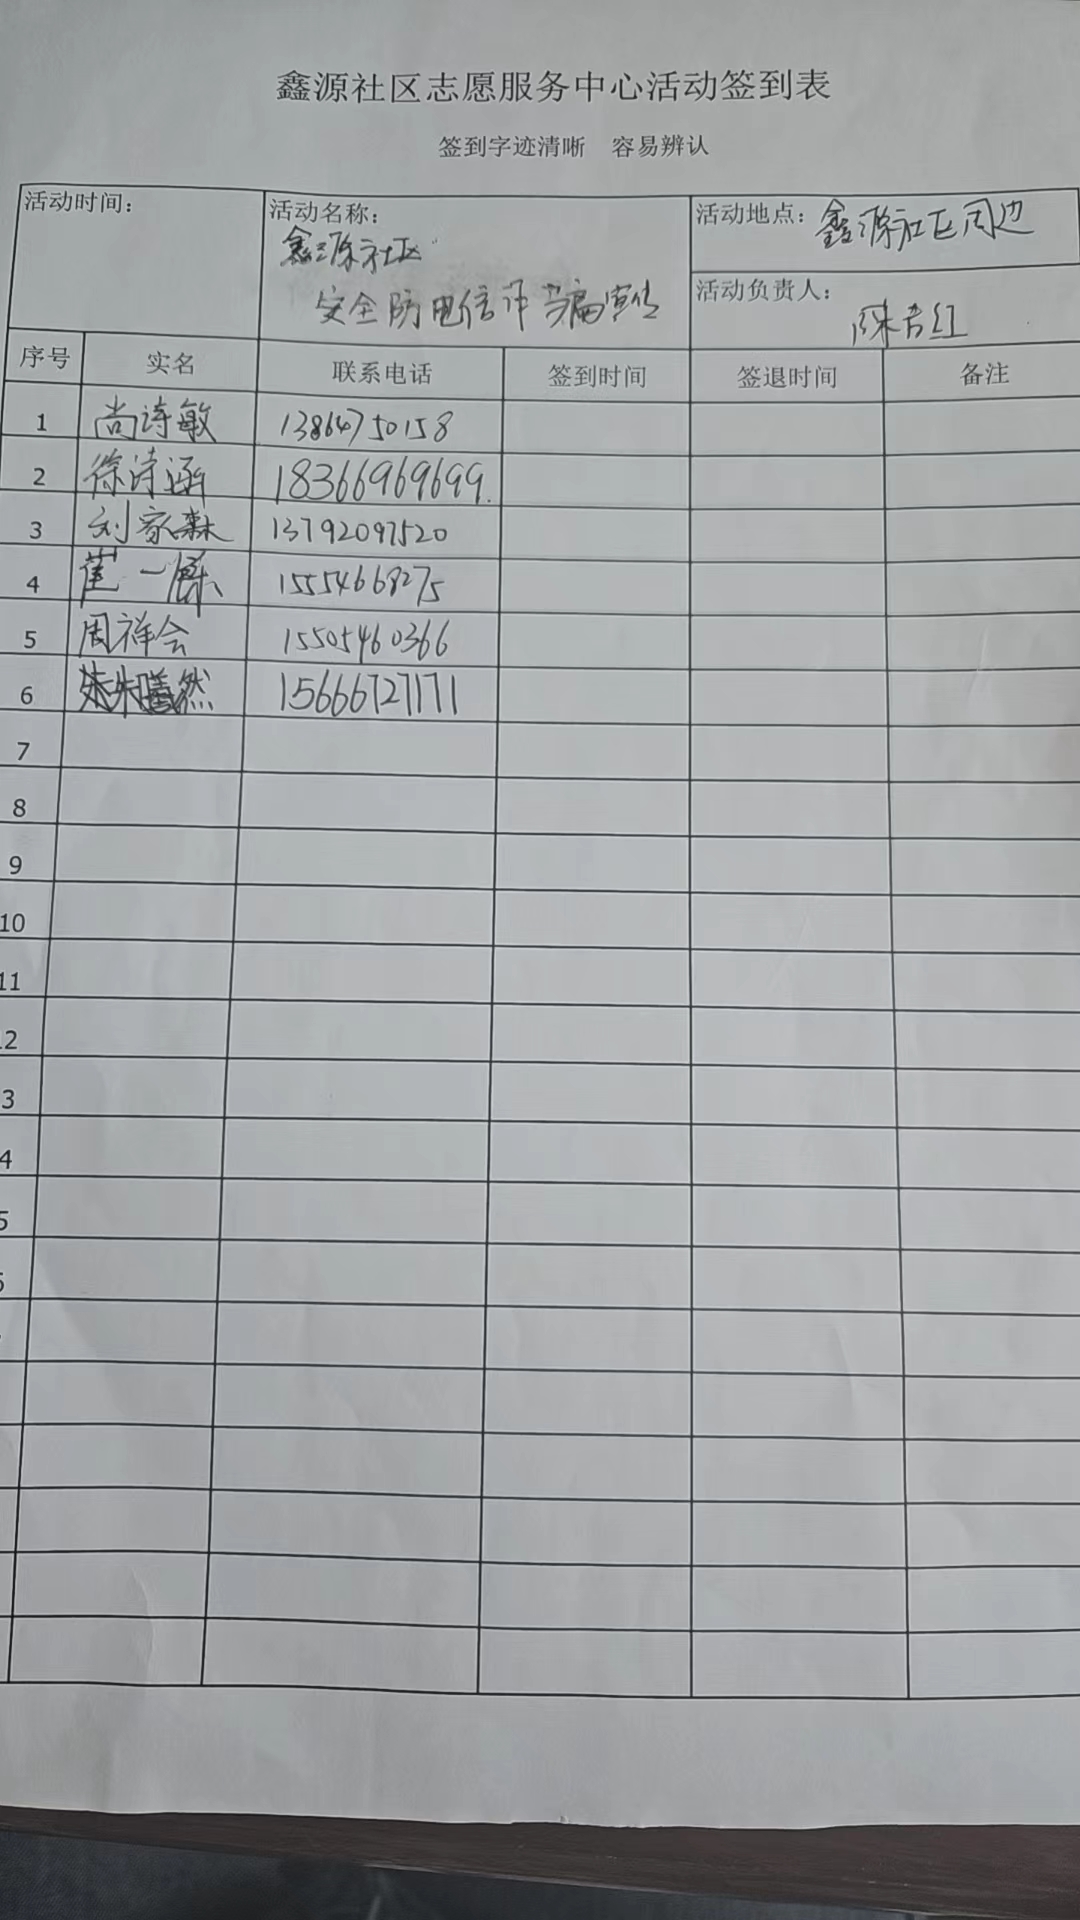 鑫源社区志愿服务中心活动签到表
签到字迹清晰 容易辨认
活动时间：
活动名称：
鑫源社区
安全防电信诈骗宣传
活动地点：鑫源社区周边
活动负责人：
陈吉红
序号 实名 联系电话 签到时间 签退时间 备注
1 尚诗敏 13864750158
2 徐诗涵 18366969699.
3 刘家森 13792097520
4 崔一 15554668275
5 周祥会 15505460366
6 朱 然 15666727171
7
8
9
10
11
2
3
4
5